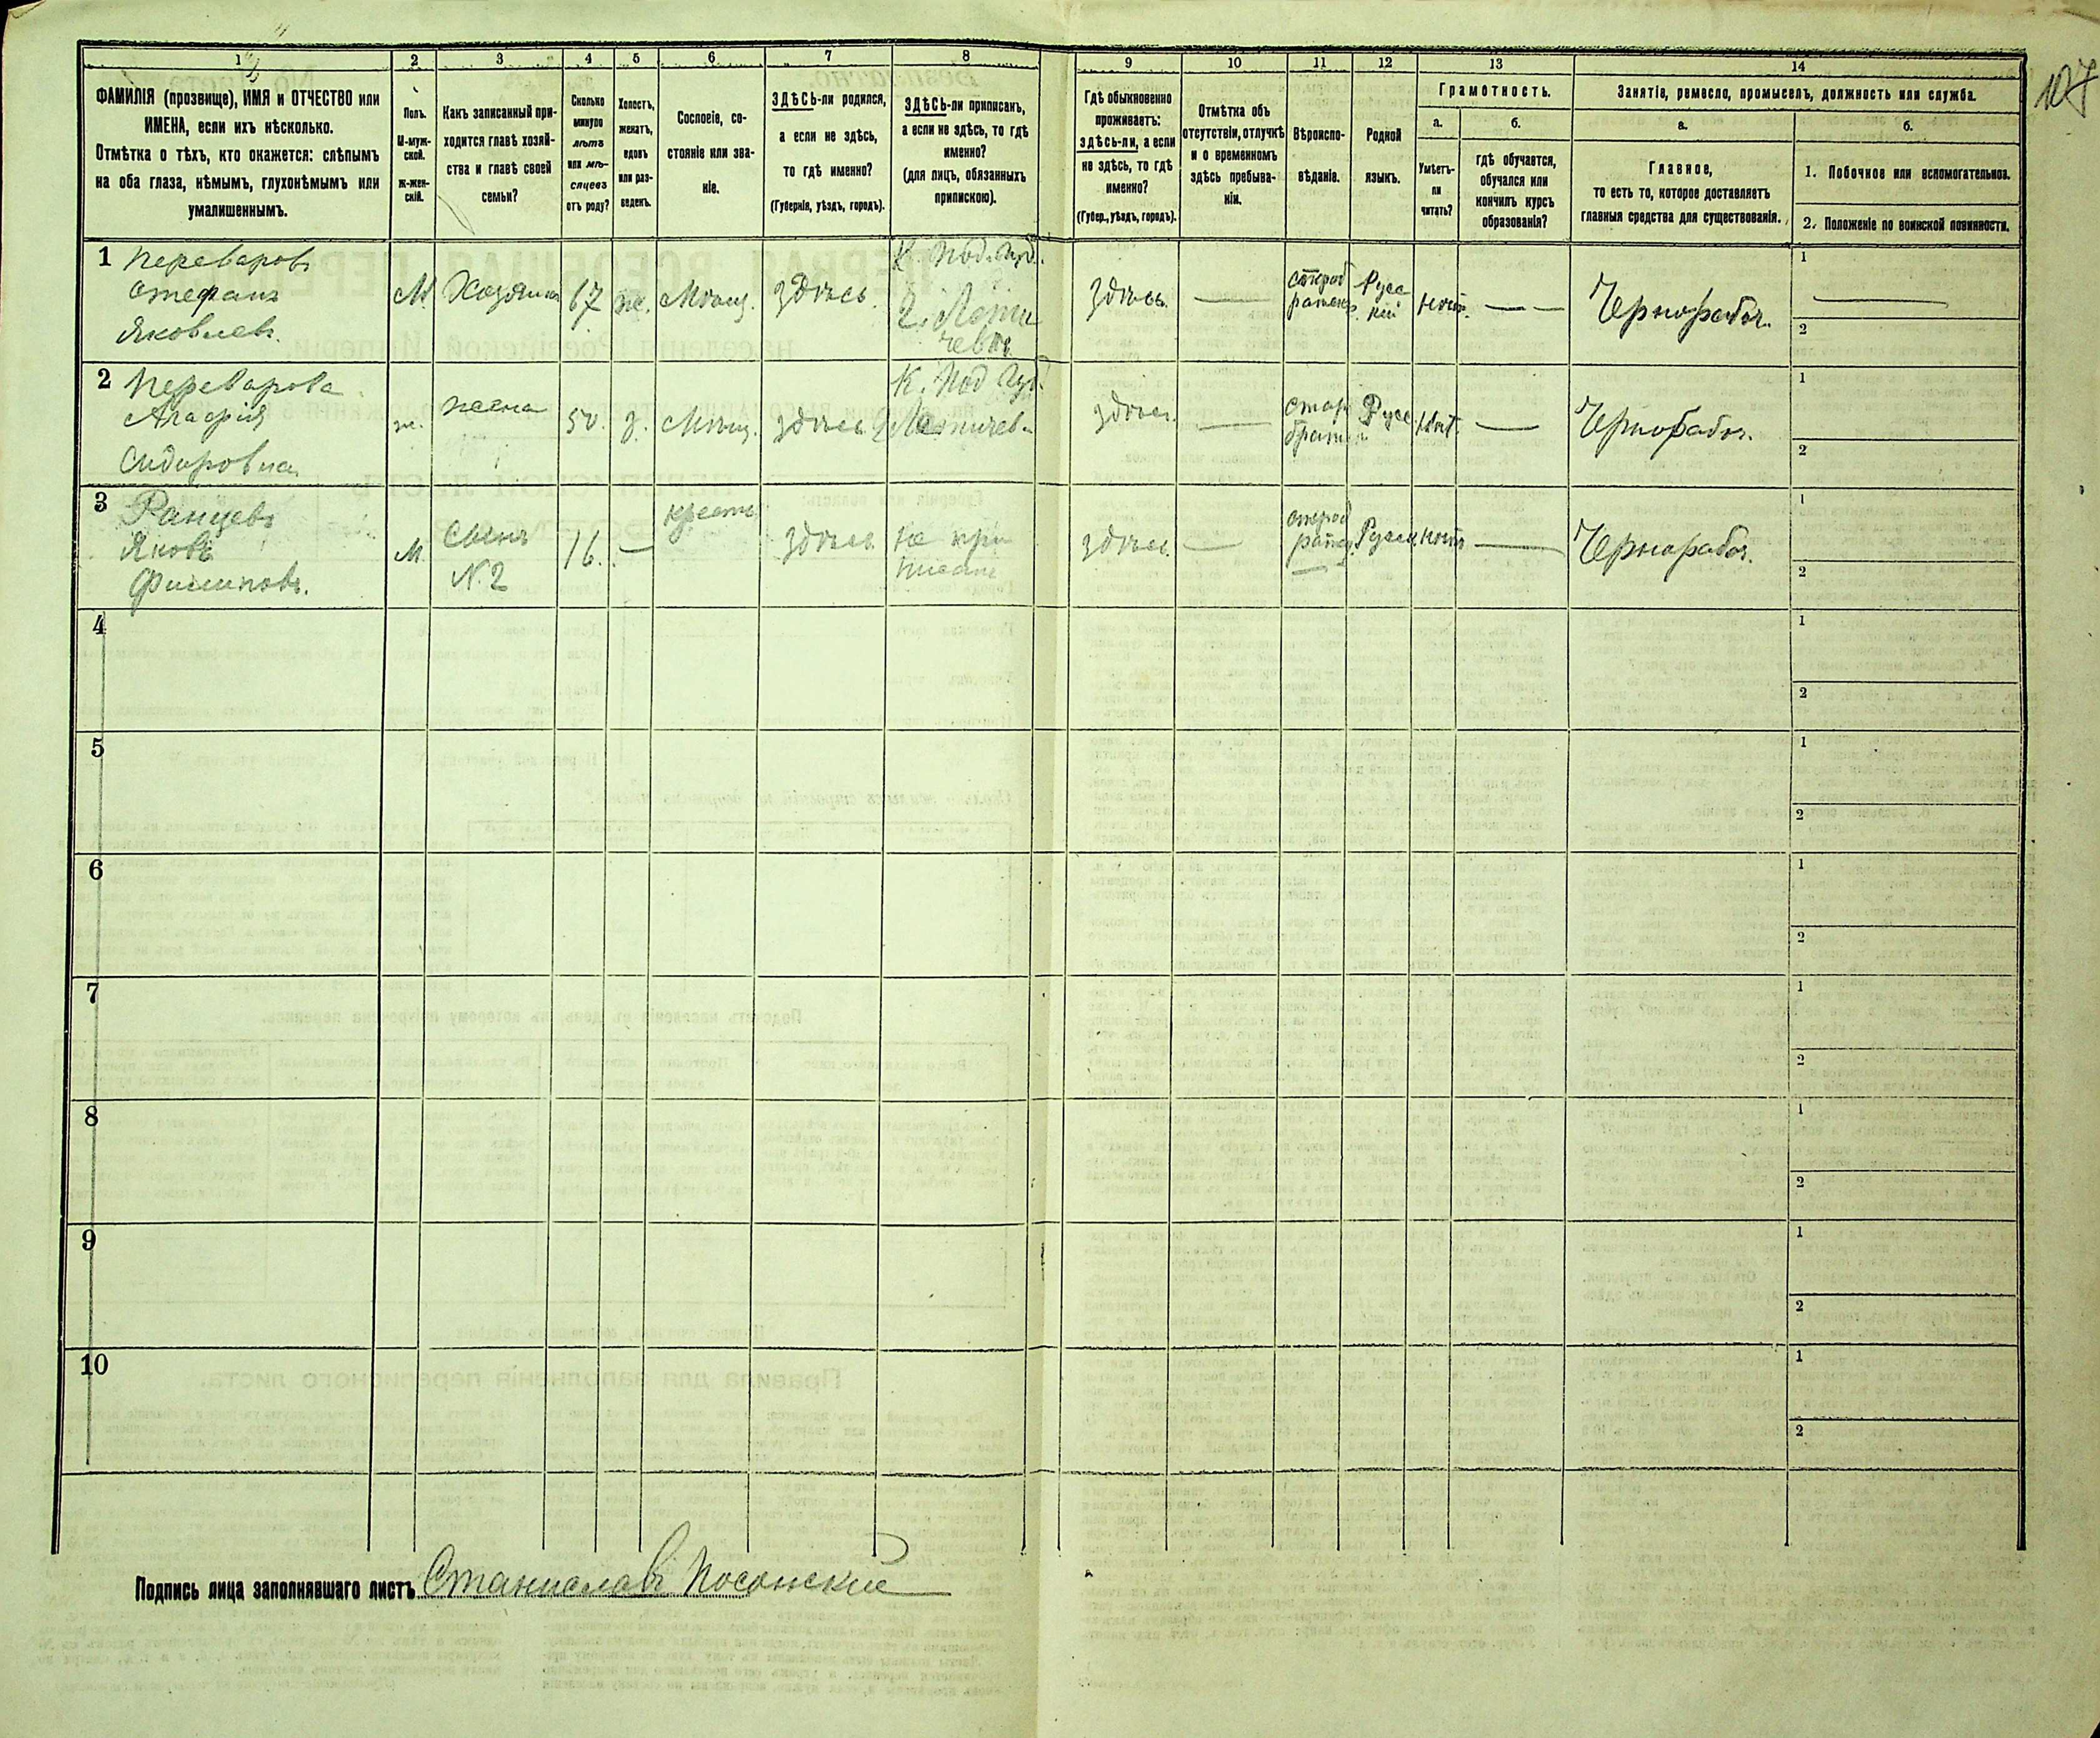 107
1
ФАМИЛІЯ (прозвище), ИМЯ и ОТЧЕСТВО или
ИМЕНА, если ихъ нѣсколько.
Отмѣтка о тѣхъ, кто окажется: слѣпымъ
на оба глаза, нѣмымъ, глухонѣмымъ или
умалишеннымъ.
2
Полъ.
М-муж-
ской.
ж-жен-
скій.
3
Какъ записанный при-
ходится главѣ хозяй-
ства и главѣ своей
семьи?
4
Сколько
минуло
лѣтъ
или мѣ-
сяцевъ
отъ роду?
5
Холостъ,
женатъ,
вдовъ
или раз-
веденъ.
6
Сословіе, со-
стояніе или зва-
ніе.
7
ЗДѢСЬ-ли родился,
а если не здѣсь,
то гдѣ именно?
(Губернія, уѣздъ, городъ).
8
ЗДѢСЬ-ли приписанъ,
а если не здѣсь, то гдѣ
именно?
(для лицъ, обязанныхъ
припискою).
9
Гдѣ обыкновенно
проживаетъ:
здѣсь-ли, а если
не здѣсь, то гдѣ
именно?
(Губер., уѣздъ, городъ).
10
Отмѣтка объ
отсутствіи, отлучкѣ
и о временномъ
здѣсь пребыва-
ніи.
11
Вѣроиспо-
вѣданіе.
12
Родной
языкъ.
13
Грамотность.
а.
Умѣетъ-
ли
читать?
б.
гдѣ обучается,
обучался или
кончилъ курсъ
образованія?
14
Занятіе, ремесло, промыселъ, должность или служба.
а.
Главное,
то есть то, которое доставляетъ
главныя средства для существованія.
б.
1. Побочное или вспомогательное.
2. Положеніе по воинской повинности.
1 Переваровъ
Стефанъ
Яковлевъ.
М. Хозяинъ 67 ж. Мѣщ. здѣсь.
К. Под. Губ.
г. Лети
чевъ
Здѣсь. — Русс
кій нѣтъ. — — Чернорабоч.
1
2
2 Переварова
Агафія
Сидоровна
ж. жена 50. з. Мѣщ. здѣсь
К. Под Губ.
Летичев.
здѣсь. — Русс нѣт. — Чернорабоч.
1
2
3 Ранцевъ
Яковъ
Филиповъ.
М. Сынъ
N. 2
16. — крест здѣсь
не при
писан
здѣсь — нѣтъ — Чернорабоч.
1
2
4
1
2
5
1
2
6
1
2
7
1
2
8
1
2
9
1
2
10
1
2
Подпись лица заполнявшаго листъ Станиславъ Посонскій